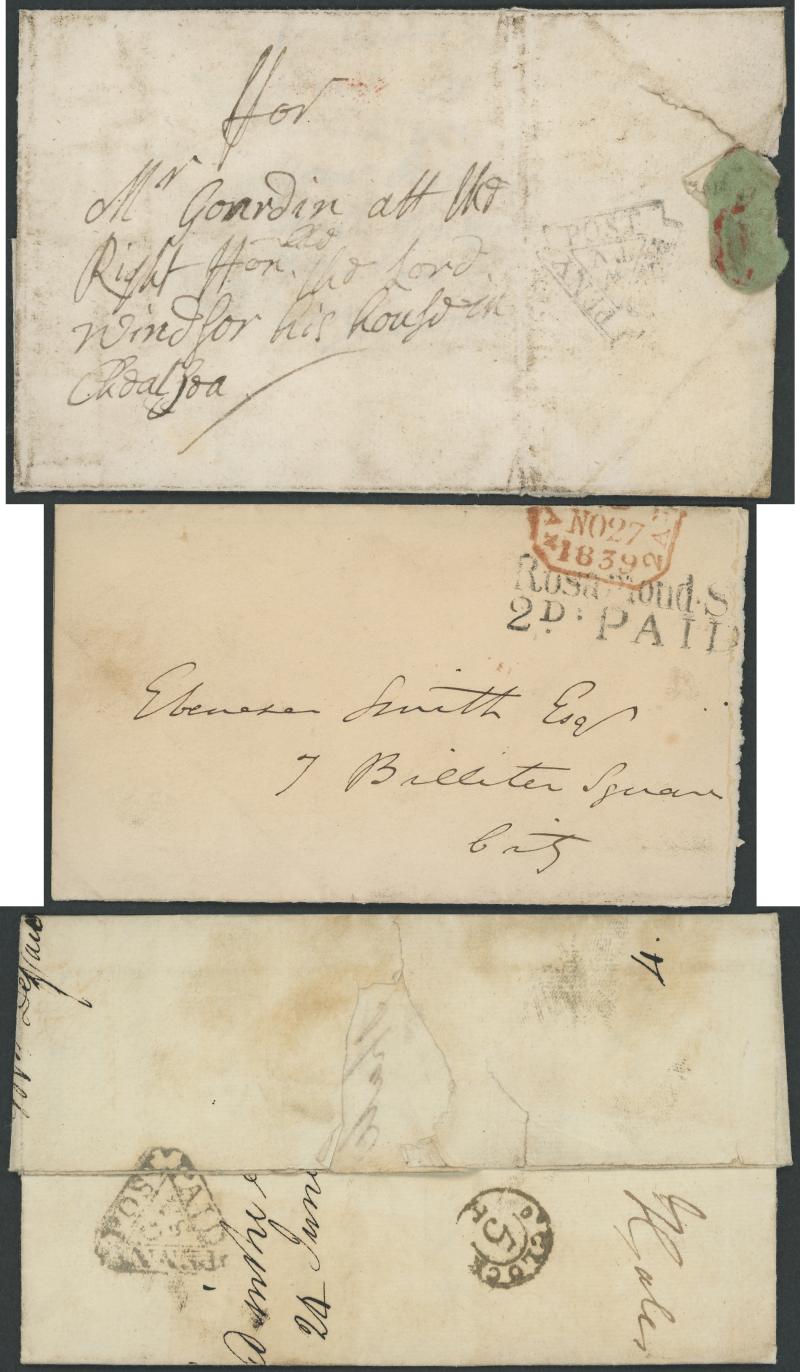 ffor
Mr Gourdin att the
Right Honble the Lord
Windsor his house in
Chealsea
POST
PENY
NO 27
1839
Rosamond. S
2D: PAID
Ebenezer Smith Esqr
7 Billiter Square
City
4.
PENY
POST
PAID
24 June
5
O'CLOCK
Hales